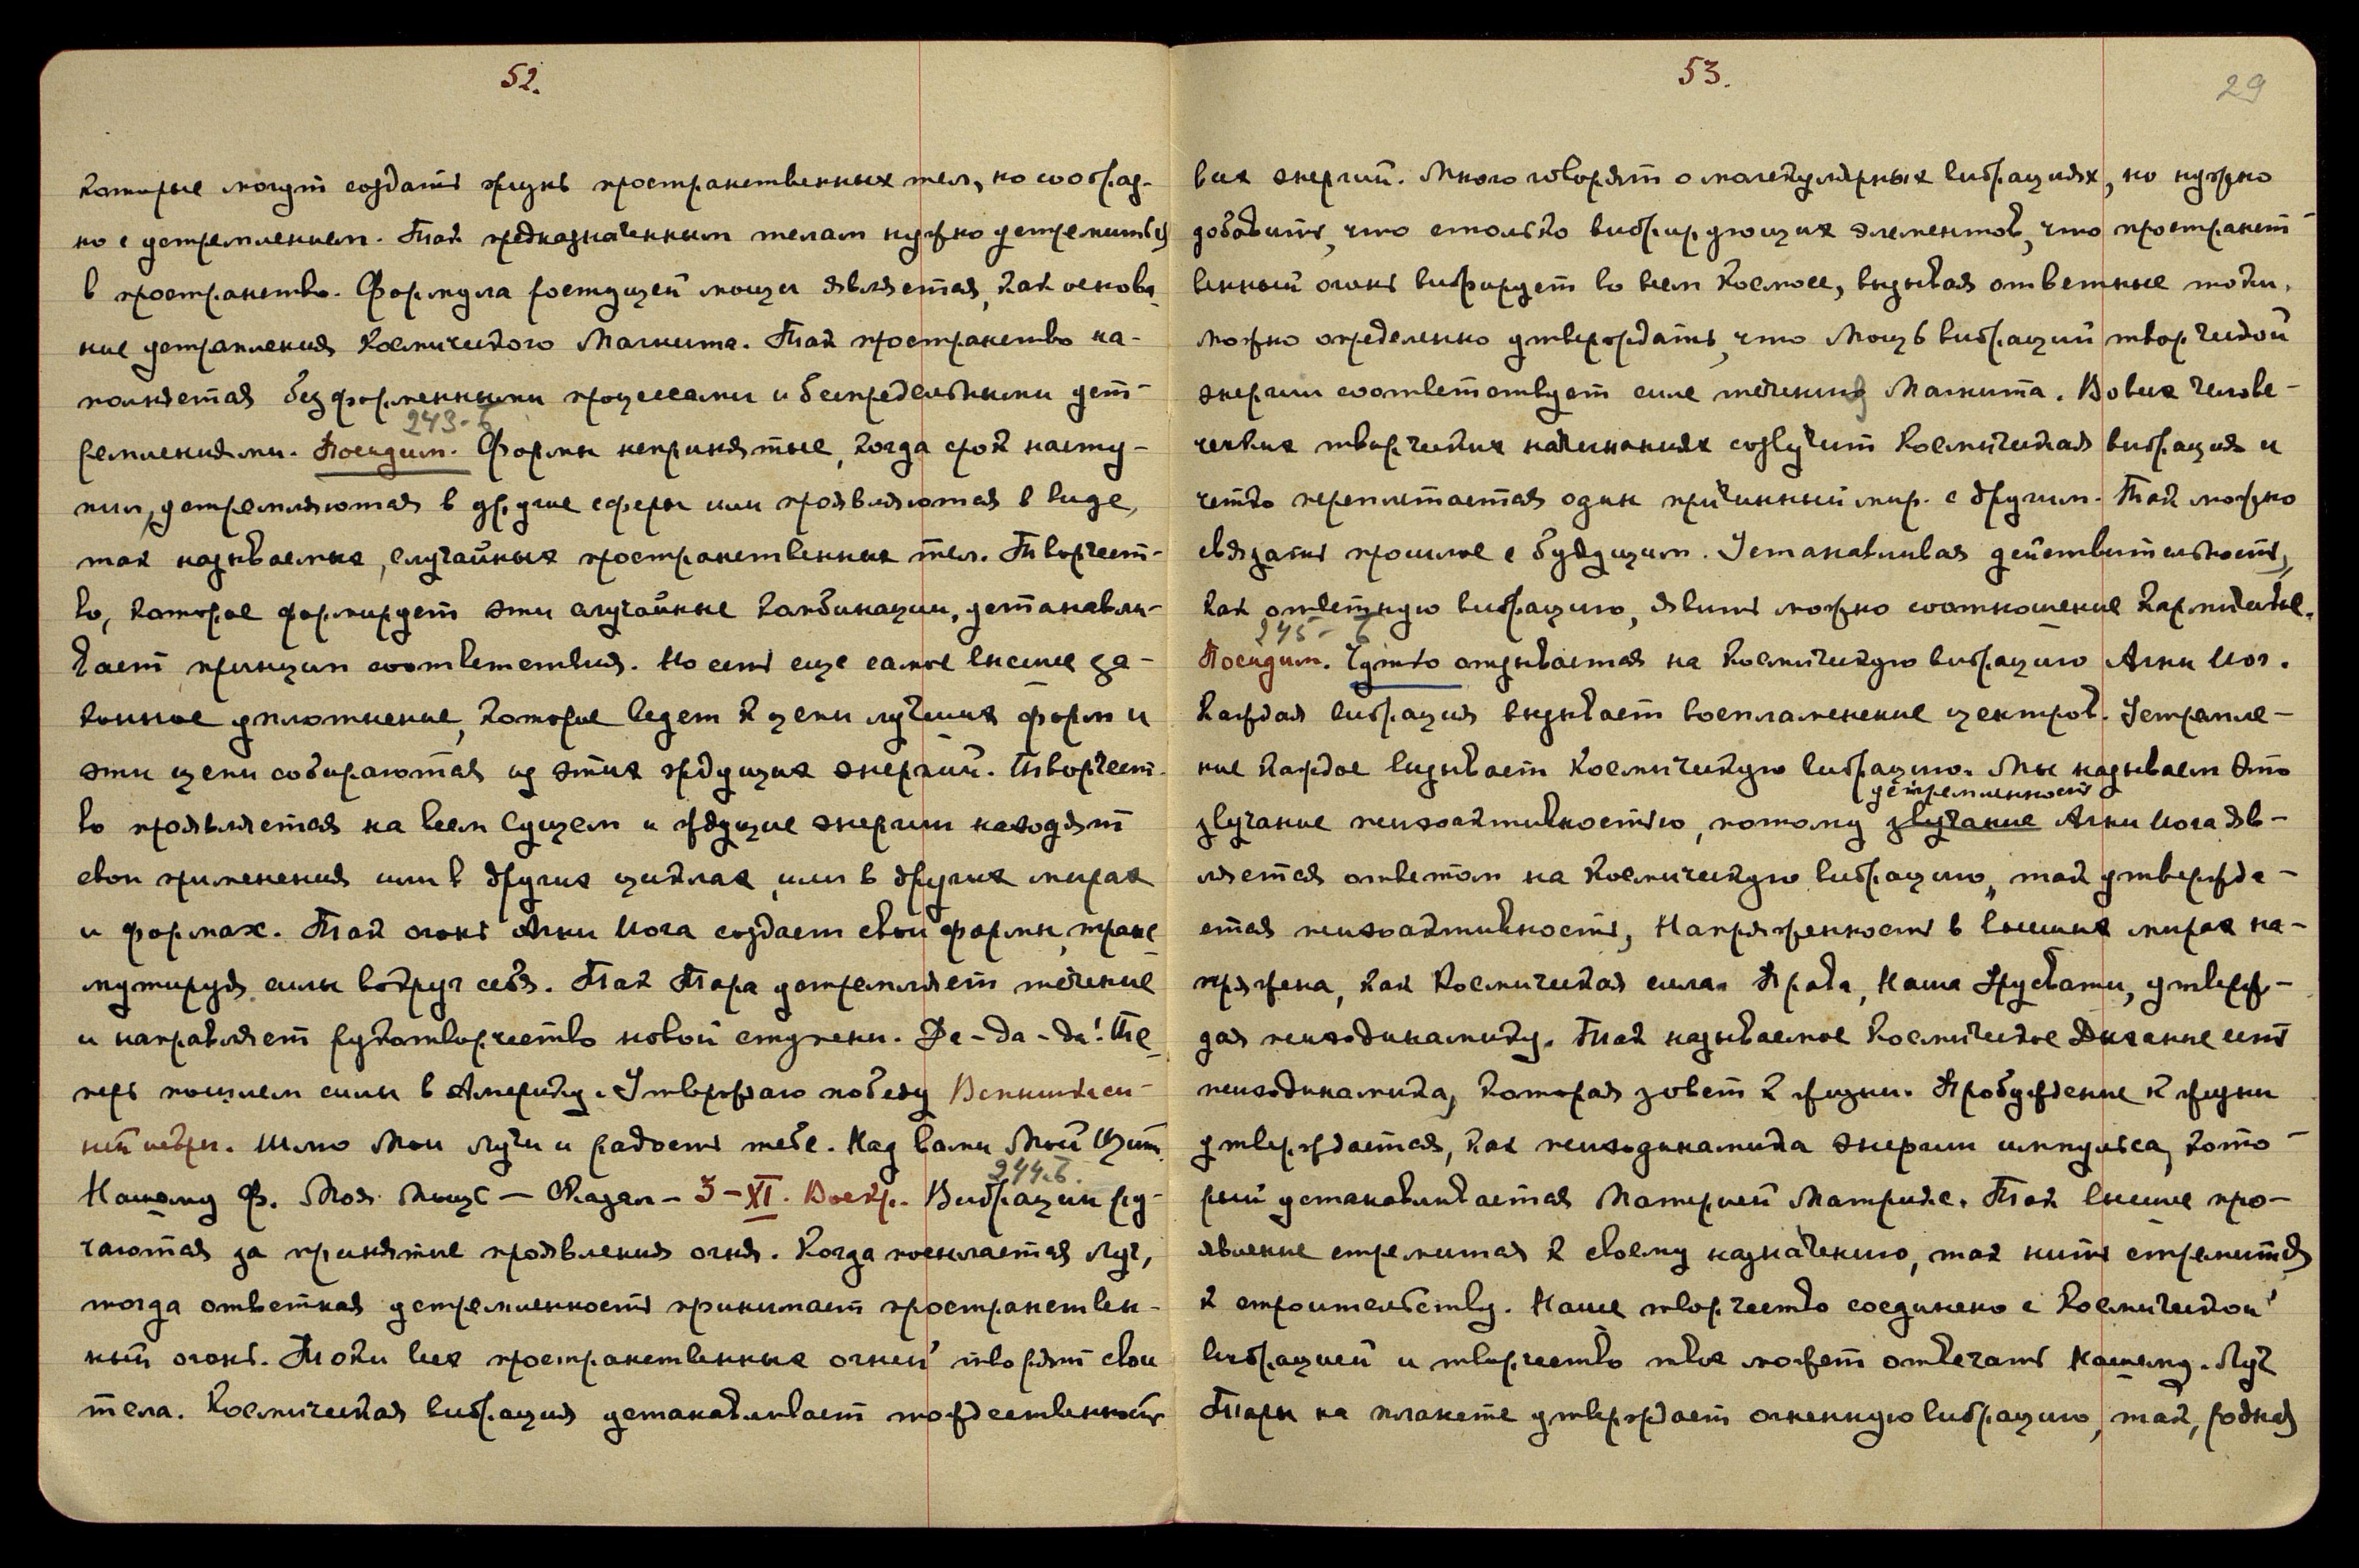 52.
которые могут создать жизнь пространственных тел, но сообраз-
но с устремлением. Так предназначенным телам нужно устремиться
в пространство. Формула растущей мощи является, как основа-
ние устремления Космического Магнита. Так пространство на-
полняется безформенными процессами и беспредельными уст-
243-б
ремлениями. Посидим. Формы непринятые, когда срок насту-
пил, устремляются в другие сферы или проявляются в виде,
так называемых, случайных пространственных тел. Творчест-
во, которое формирует эти случайные комбинации, устанавли-
вает принцип соответствия. Но есть еще самое высшее за-
конное уплотнение, которое ведет к цепи лучших форм и
эти цепи собираются из этих ждущих энергий. Творчест-
во проявляется на всем Сущем и ждущие энергии находят
свои применения или в других циклах, или в других мирах
и формах. Так огонь Агни Йога создает свои формы, транс-
мутируя силы вокруг себя. Так Тара устремляет течение
и направляет рукотворчество новой ступени. Да-да-да! Те-
перь пошлем силы в Америку. Утверждаю победу
Шлю Мои Лучи и радость тебе. Над вами Мой Щит.
244.б.
Нашему Ф. Моя Мощь — Сказал — 3-XI. Воскр. Вибрации ру-
чаются за принятие проявления огня. Когда посылается Луч,
тогда ответная устремленность принимает пространствен-
ный огонь. Токи всех пространственных огней творят свои
тела. Космическая вибрация устанавливает тождественность
53.
29
всех энергий. Много говорят о молекулярных вибрациях, но нужно
добавить, что столько вибрирующих элементов, что пространст-
венный огонь вибрирует во всем Космосе, вызывая ответные токи.
Можно определенно утверждать, что Мощь вибраций творческой
энергии соответствует силе течения Магнита. Во всех челове-
ческих творческих начинаниях созвучит Космическая вибрация и
четко переплетается один причинный мир с другим. Так можно
связать прошлое с будущим. Устанавливая действительность,
как ответную вибрацию, явить можно соотношение Кармическое.
245-б
Посидим. Чутко отзывается на Космическую вибрацию Агни Йог.
Каждая вибрация вызывает воспламенение центров. Устремле-
ние каждое вызывает Космическую вибрацию. Мы называем это
устремленность
звучание психоактивностью, потому звучание Агни Йога яв-
ляется ответом на Космическую вибрацию, так утвержда-
ется психоактивность, Напряженность в высших мирах на-
пряжена, как Космическая сила. Права, Наша Урусвати, утверж-
дая психодинамику. Так называемое Космическое Дыхание есть
психодинамика, которая зовет к жизни. Пробуждение к жизни
утверждается, как психодинамика энергии импульса, кото-
рый устанавливается Материей Матрикс. Так высшее про-
явление стремится к своему назначению, так нить стремится
к строительству. Наше творчество соединено с Космической
вибрацией и творчество твое может отвечать Нашему. Луч
Тары на планете утверждает огненную вибрацию, так, родная